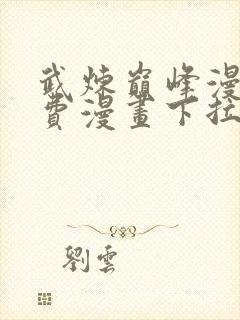 武炼巔峰漫
費漫畫下拉
劉雲